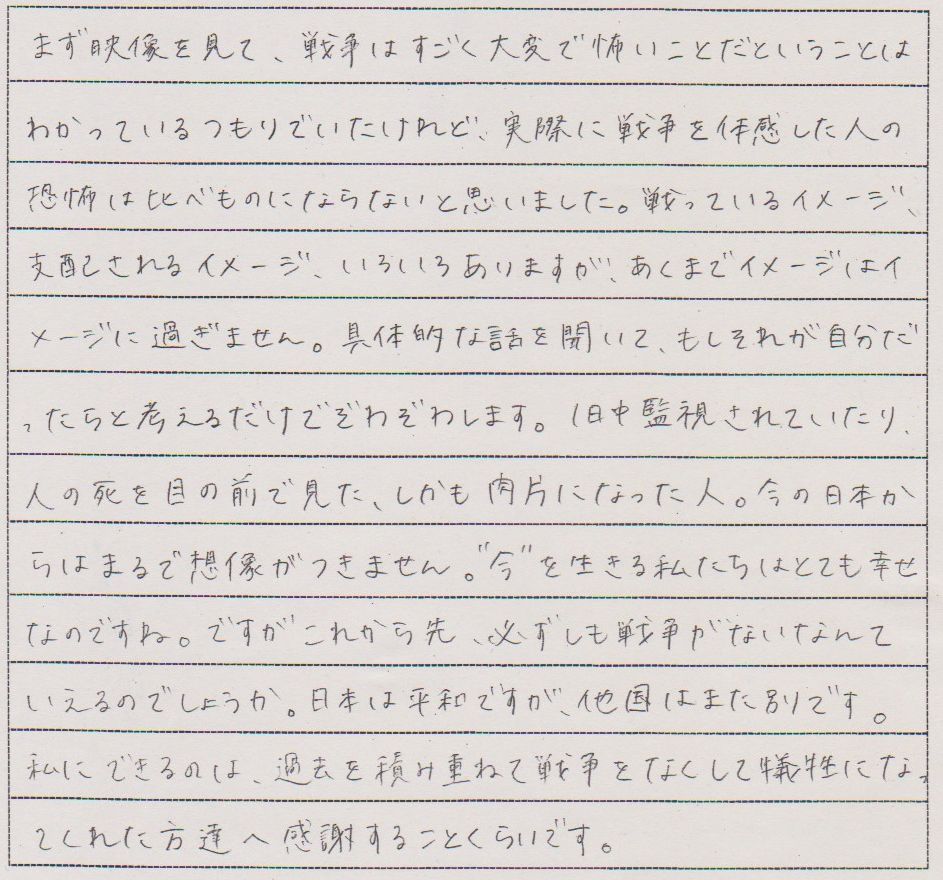 まず映像を見て、戦争はすごく大変で怖いことだということは
わかっているつもりでいたけれど、実際に戦争を体感した人の
恐怖は比べものにならないと思いました。戦っているイメージ、
支配されるイメージ、いろいろありますが、あくまでイメージはイ
メージに過ぎません。具体的な話を聞いて、もしそれが自分だ
ったらと考えるだけでぞわぞわします。1日中監視されていたり、
人の死を目の前で見た、しかも肉片になった人。今の日本か
らはまるで想像がつきません。"今"を生きる私たちはとても幸せ
なのですね。ですがこれから先、必ずしも戦争がないなんて
いえるのでしょうか。日本は平和ですが、他国はまた別です。
私にできるのは、過去を積み重ねて戦争をなくして犠牲になっ
てくれた方達へ感謝することくらいです。